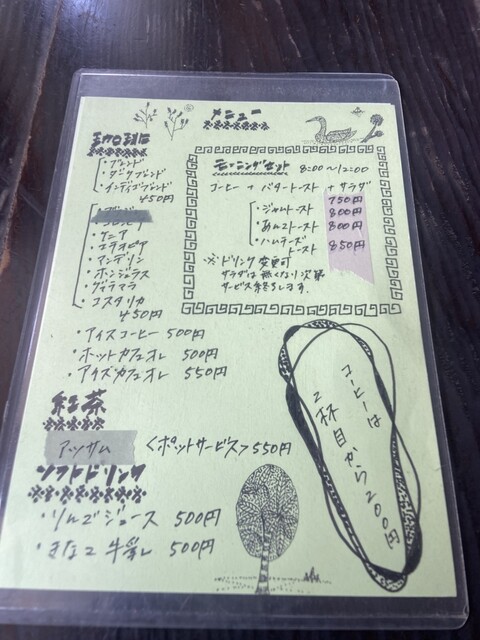 メニュー
珈琲
・ブレンド
・ダークブレンド
・インディオブレンド
450円
・コロンビア
・ケニア
・エチオピア
・マンデリン
・ホンジュラス
・グァテマラ
・コスタリカ
450円
・アイスコーヒー 500円
・ホットカフェオレ 500円
・アイスカフェオレ 550円
紅茶
アッサム <ポットサービス> 550円
ソフトドリンク
・りんごジュース 500円
・きなこ牛乳 500円
モーニングセット 8:00~12:00
コーヒー + バタートースト + サラダ
750円
・ジャムトースト 800円
・あんこトースト 800円
・ハムチーズトースト 850円
※ドリンク変更可
サラダは無くなり次第
サービス終了します。
コーヒーは
2杯目から200円